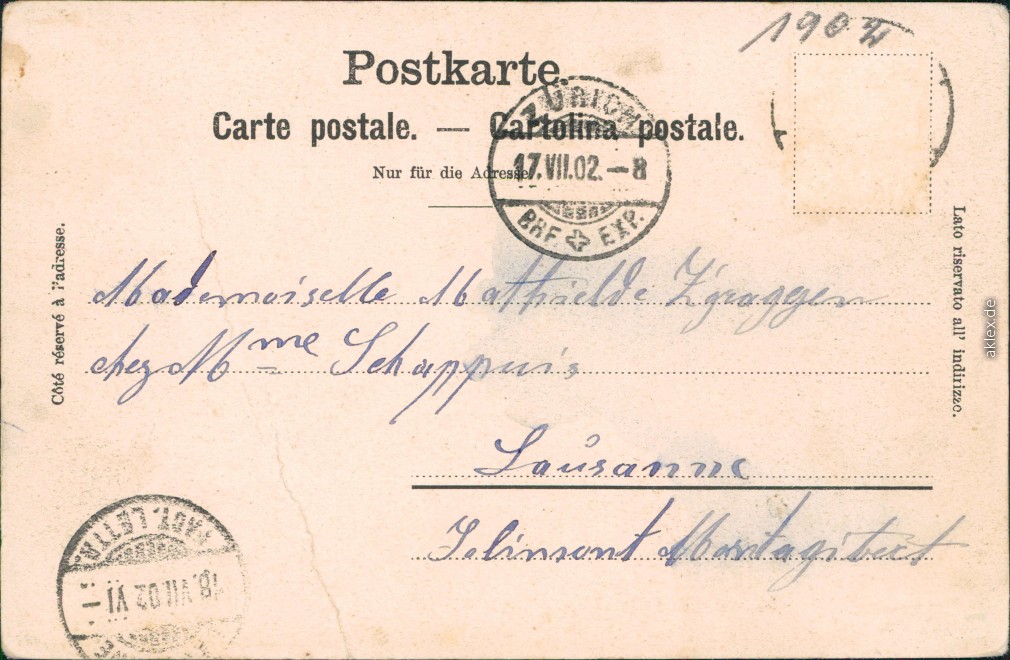 1902
Postkarte.
Carte postale. — Cartolina postale.
Nur für die Adresse
ZÜRICH
17.VII.02.-8
BRF. EXP.
Côté réservé à l'adresse.
Lato riservato all' indirizzo.
aklex.de
Mademoiselle Mathielde Zgraggen
chez Mme Schappuis
Lausanne
Jelimont
18.VII.02.VI